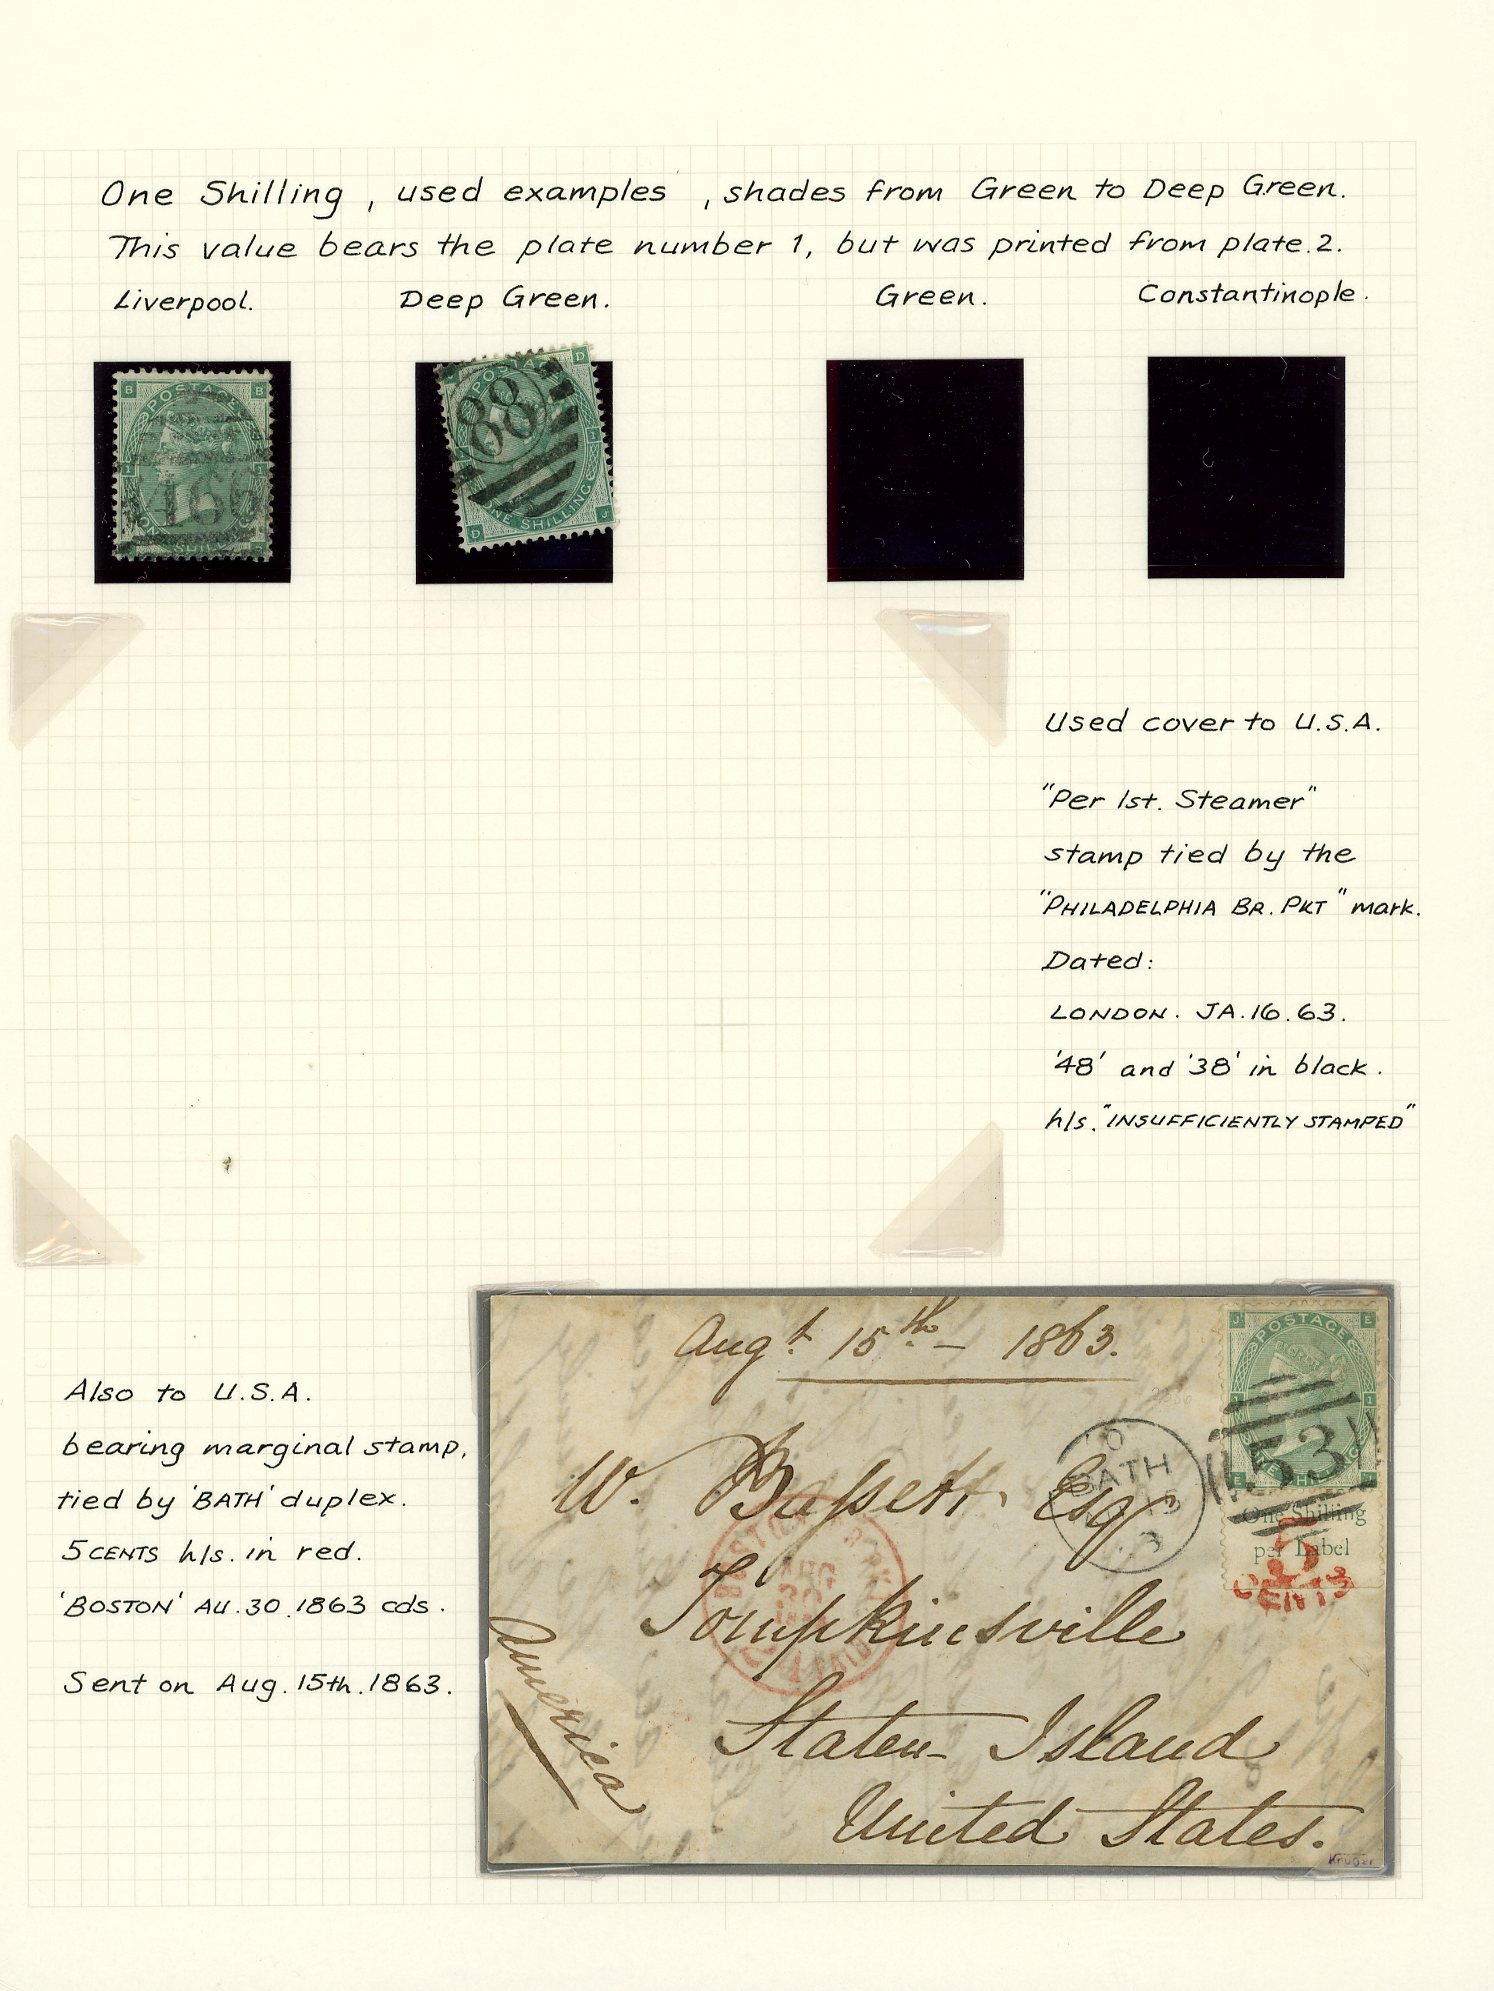 One Shilling , used examples , shades from Green to Deep Green.
This value bears the plate number 1, but was printed from plate.2.
Liverpool. Deep Green. Green. Constantinople.
B B
POSTAGE
1 1
466
D
POSTAGE
88
1
ONE SHILLING
D J
Used cover to U.S.A.
"Per 1st. Steamer"
stamp tied by the
"PHILADELPHIA BR. PKT" mark.
Dated:
LONDON. JA.16.63.
'48' and '38' in black.
h/s. "INSUFFICIENTLY STAMPED"
Also to U.S.A.
bearing marginal stamp,
tied by 'BATH' duplex.
5 CENTS h/s. in red.
'BOSTON' AU.30.1863 cds.
Sent on Aug. 15th. 1863.
Augt. 15th. - 1863.
J POSTAGE E
1 1
53
E J
One Shilling
per Label
5
CENTS
BATH
W. Bassett Esq
BOSTON
AUG
Tompkinsville
America
Staten Island
United States.
Kruger